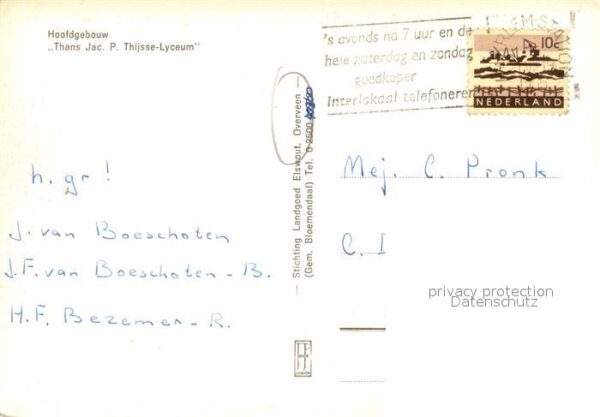 Hoofdgebouw
„Thans Jac. P. Thijsse-Lyceum"
h. gr!
J. van Boeschoten
J.F. van Boeschoten - B.
H.F. Bezemer - R.
— Stichting Landgoed Elswout, Overveen —
(Gem. Bloemendaal) Tel. 0 2500
's avonds na 7 uur en de
hele zaterdag en zondag
goedkoper
Interlokaal telefoneren
10c
NEDERLAND
Mej. C. Pronk
C.
privacy protection
Datenschutz